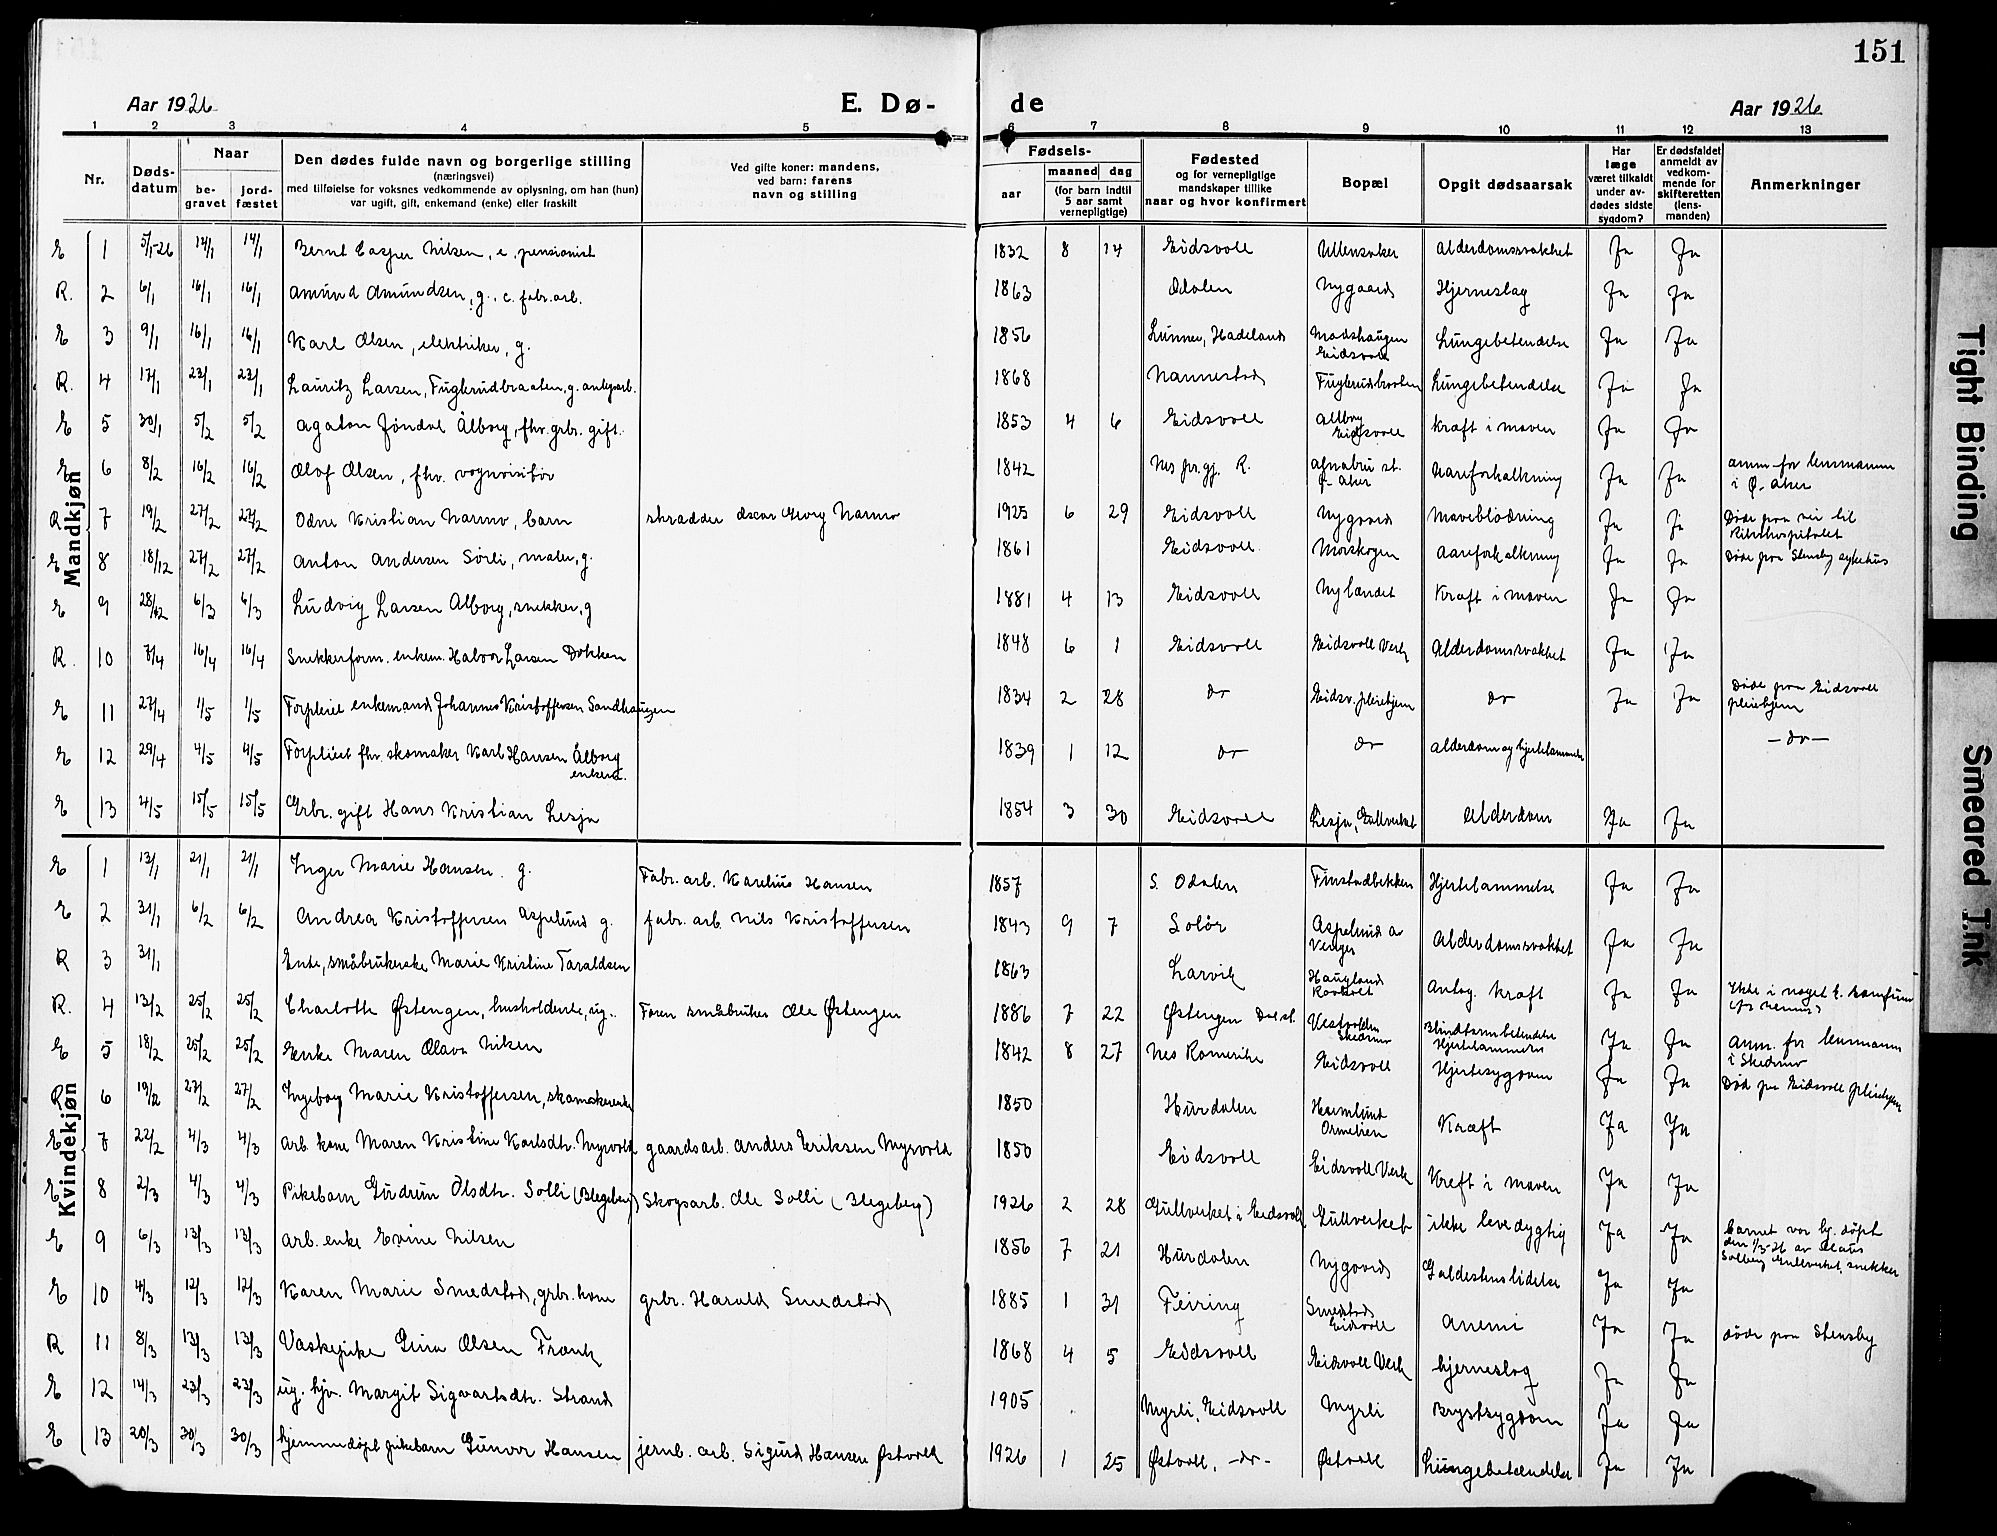 151
Aar 1926
E. Dø-
de
Aar 1926
1 2 3 4 5 6 7 8 9 10 11 12 13
Nr.
Døds-datum
Naar
be-gravet
jord-fæstet
Den dødes fulde navn og borgerlige stilling
(næringsvei)
med tilføielse for voksnes vedkommende av oplysning, om han (hun)
var ugift, gift, enkemand (enke) eller fraskilt
Ved gifte koner: mandens,
ved barn: farens
navn og stilling
Fødsels-
aar
maaned dag
(for barn indtil
5 aar samt
vernepligtige)
Fødested
og for vernepligtige
mandskaper tillike
naar og hvor konfirmert
Bopæl
Opgit dødsaarsak
Har
læge
været tilkaldt
under av-
dødes sidste
sygdom?
Er dødsfaldet
anmeldt av
vedkom-
mende for
skifteretten
(lens-
manden)
Anmerkninger
Mandkjøn
E 1 5/1-26 14/1 14/1 Bernt Casper Nilsen, e, pensionist 1832 8 14 Eidsvoll Ullensaker Alderdomssvakhet Ja Ja
R. 2 6/1 16/1 16/1 Amund Amundsen, g., e. fabr. arb. 1863 Odalen Nygaard Hjerneslag Ja Ja
E 3 9/1 16/1 16/1 Karl Olsen, elektriker, g. 1856 Lunner, Hadeland Madshaugen Eidsvoll Lungebetendelse Ja Ja
R. 4 17/1 23/1 23/1 Lauritz Larsen, Fuglerudbraaten, g. anlegsarb. 1868 Nannestad Fuglerudbraaten Lungebetendelse Ja Ja
E 5 30/1 5/2 5/2 Agaton Jøndal Ålborg, fhv. grbr. gift. 1853 4 6 Eidsvoll Ålborg Eidsvoll Kræft i maven Ja Ja
E 6 8/2 16/2 16/2 Olof Olsen, fhv. vognvisitør 1842 Nes pr.gj. R. Alnabru st. Ø. Aker Aareforkalkning Ja Ja anm. for lensmann i Ø. Aker
R 7 19/2 27/2 27/2 Odne Kristian Narmo, barn skradder Oscar Georg Narmo 1925 6 29 Eidsvoll Nygaard Maveblødning Ja Ja Døde paa vei til Rikshospitalet
E 8 18/12 27/2 27/2 Anton Andersen Sørli, maler, g. 1861 Eidsvoll Morskogen Aareforkalkning Ja Ja Døde paa Stensby sykehus
E 9 28/2 6/3 6/3 Ludvig Larsen Ålborg, snekker, g 1881 4 13 Eidsvoll Nylændet Kræft i maven Ja Ja
R. 10 7/4 16/4 16/4 Snekkerform. enkem. Halvor Larsen Dokken 1848 6 1 Eidsvoll Eidsvoll Verk Alderdomssvakhet Ja Ja
E 11 27/4 1/5 1/5 Forpleiet enkemand Johannes Kristoffersen Sandhaugen 1834 2 28 do Eidsv. pleiehjem do Ja Ja Døde paa Eidsvoll pleiehjem
E 12 29/4 4/5 4/5 Forpleiet fhv. skomaker Karl Hansen Ålborg enkem. 1839 1 12 do do Alderdom og hjertelammelse -do-
E 13 4/5 15/5 15/5 Grbr. gift Hans Kristian Lesja 1854 3 30 Eidsvoll Lesja, Gullverket Alderdom Ja Ja
Kvindekjøn
E 1 13/1 21/1 21/1 Inger Marie Hansen. g. Fabr. arb. Karelius Hansen 1857 S. Odalen Finstadbekken Hjertelammelse Ja Ja
E 2 31/1 6/2 6/2 Andrea Kristoffersen Aspelund g. fabr. arb. Nils Kristoffersen 1843 9 7 Solør Aspelund av Venger Alderdomssvakhet Ja Ja
R 3 31/1 Enke, småbrukerske Marie Kristine Taraldsen 1863 Larvik Haugland Antag. kræft Ja Ja Ikke i noget k. samfund
R. 4 13/2 25/2 25/2 Charlotte Østengen, husholderske, ug. Faren småbruker Ole Østengen 1886 7 22 Østengen Dal st. Vestvolden Skedsmo Blindtarmbetendelse Hjertelammelse Ja Ja anm. for lensmann i Skedsmo
E 5 18/2 25/2 25/2 Enke Maren Olava Nilsen 1842 8 27 Nes Romerike Eidsvoll Hjertesygdom Ja Ja Død paa Eidsvoll pleiehjem
R 6 19/2 27/2 27/2 Ingeborg Marie Kristoffersen, skomakerenke 1850 Hurdalen Harmlund Ormelien Kræft Ja Ja
E 7 22/2 4/3 4/3 Arb. kone Maren Kristine Karlsdtr. Myrvold gaardsarb. Anders Eriksen Myrvold 1850 Eidsvoll Eidsvoll Verk Kreft i maven Ja Ja
E 8 2/3 4/3 4/3 Pikebarn Gudrun Olsdtr. Solli (Blegeberg) Skogsarb. Ole Solli (Blegeberg) 1926 2 28 Gullverket i Eidsvoll Gullverket ikke levedygtig Ja Ja barnet var hj. døpt den 1/3-26 av Claus Solberg Gullverket, snekker
E 9 6/3 13/3 13/3 Arb. enke Evine Nilsen 1856 7 21 Hurdalen Nygaard Galdestenslidelse Ja Ja
E 10 4/3 12/3 12/3 Karen Marie Smedstad, grbr. kone grbr. Harald Smedstad 1885 1 31 Feiring Smedstad Eidsvoll Anemi Ja Ja døde paa Stensby
R 11 8/3 13/3 13/3 Vaskepike Gina Olsen Frank 1868 4 5 Eidsvoll Eidsvoll Verk hjerneslag Ja Ja
E 12 14/3 23/3 23/3 ug. hjv. Margit Sigvartsdtr. Strand 1905 Myrli, Eidsvoll Myrli Brystsygdom Ja Ja
E 13 20/3 30/3 30/3 hjemmedøpt pikebarn Gunvor Hansen jernb. arb. Sigurd Hansen Østvold 1926 1 25 Østvoll, -do- Østvoll Lungebetændelse Ja Ja
Tight Binding
Smeared Ink